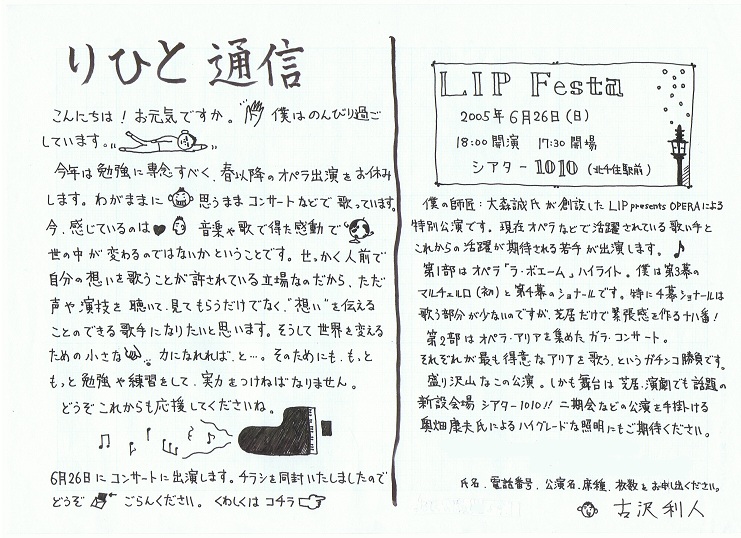 りひと通信
こんにちは！お元気ですか。僕はのんびり過ご
しています。
今年は勉強に専念すべく、春以降のオペラ出演をお休み
します。わがままに思うままコンサートなどで歌っています。
今、感じているのは 音楽や歌で得た感動で
世の中が変わるのではないかということです。せっかく人前で
自分の想いを歌うことが許されている立場なのだから、ただ
声や演技を聴いて、見てもらうだけでなく、"想い"を伝える
ことのできる歌手になりたいと思います。そうして世界を変える
ための小さな 力になれれば、と…。そのためにも、もっと
もっと勉強や練習をして、実力をつけねばなりません。
どうぞこれからも応援してくださいね。
6月26日にコンサートに出演します。チラシを同封いたしましたので
どうぞ ごらんください。くわしくはコチラ
LIP Festa
2005年6月26日(日)
18:00 開演 17:30 開場
シアター1010 (北千住駅前)
僕の師匠：大森誠氏が創設したLIP presents OPERAによる
特別公演です。現在オペラなどで活躍されている歌い手と
これからの活躍が期待される若手が出演します。
第1部はオペラ「ラ・ボエーム」ハイライト。僕は第3幕の
マルチェルロ(初)と第4幕のショナールです。特に4幕ショナールは
歌う部分が少ないのですが、芝居だけで緊張感を作る十八番！
第2部はオペラ・アリアを集めたガラ・コンサート。
それぞれが最も得意なアリアを歌う、というガチンコ勝負です。
盛り沢山なこの公演。しかも舞台は芝居・演劇でも話題の
新設会場 シアター1010!! 二期会などの公演を手掛ける
奥畑康夫氏によるハイグレードな照明にもご期待ください。
氏名、電話番号、公演名、席種、枚数をお申し出ください。
古沢利人